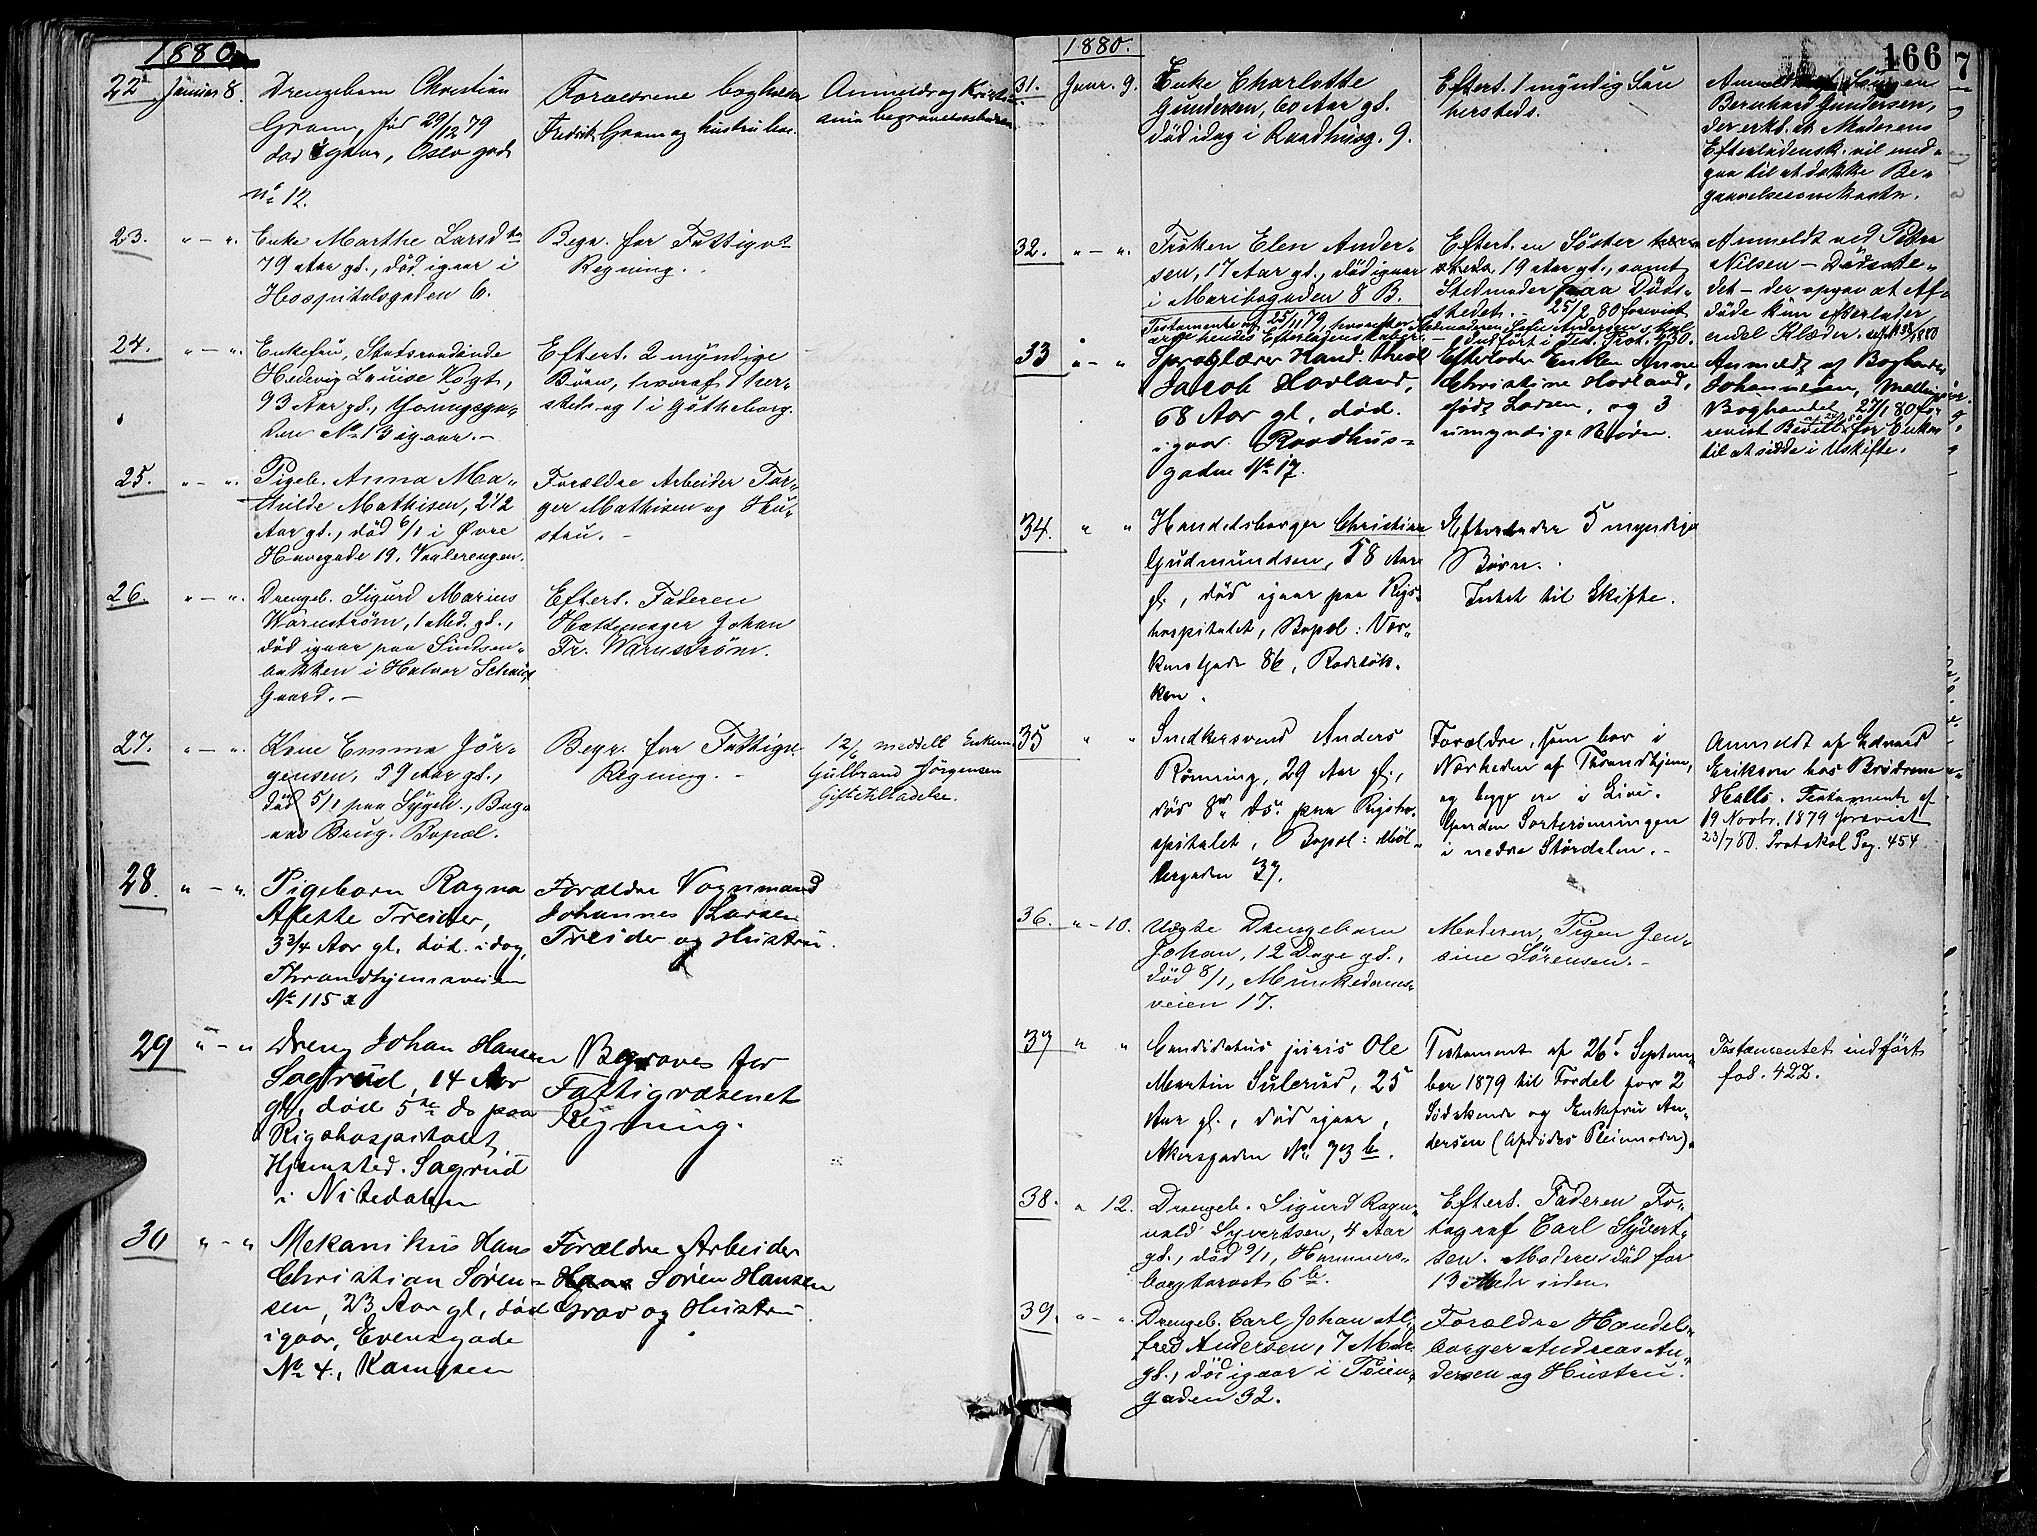 1880
22
Januar 8.
Drengebarn Christian
Gram, född 29/12 79
død igaar, Oslo gade
No 12.
Forældrene bogholder
Fredrik Gram og hustru her.
Anmeldt og Kristi-
ania begravelsesbureau
23.
" - ".
Enke Marthe Larsdtr
79 Aar gl., død igaar i
Hospitalsgaden 6.
Begr. for Fattigv.
Regning.
24.
" - ".
Enkefru, Statsraadinde
Hedevig Louise Vogt,
93 Aar gl., Youngsga-
den No 13 igaar. -
Efterl. 2 myndige
Børn, hvoraf 1 her-
steds og 1 i Gøtheborg.
25.
" - ".
Pigeb. Anna Ma-
thilde Mathisen, 2 1/2
Aar gl., død 6/1 i Øvre
Havegade 19, Vaalerengen.
Forældre Arbeider Tor-
ger Mathisen og Hu-
stru. -
26.
" - ".
Drengeb. Sigurd Marius
Warnström, 1 Md. gl.,
død igaar paa Sindsen-
bakken i Halvor Schous
Gaard. -
Efterl. Faderen
Hattemager Johan
Fr. Warnström.
27.
" - ".
Kone Emma Jør-
gensen, 59 Aar gl.,
død 5/1 paa Sygeh.,
Brug. Bopæl.
Begr. for Fattigv.
Regning. -
12/6 meddelt Enkem.
Gulbrand Jørgensen
Giftetilladelse.
28.
" - ".
Pigebarn Ragna
Alette Treider,
3 3/4 Aar gl. død. idag,
Throndhjemsveien
No 115 a
Forældre Vognmand
Johannes Larsen
Treider og Hustru.
29
" - "
Dreng Johan Hansen
Sagrud, 14 Aar
gl., død 5te ds paa
Rigshospitalet,
Hjemsted. Sagrud
i Nitedalen
Begraves for
Fattigvæsenets
Regning.
30
" - "
Mekanikus Hans
Christian Søren-
sen, 23 Aar gl, død
igaar, Evensgade
No 4, Kampen
Forældre Arbeider
Søren Hansen
Grav og Hustru
166
1880.
31.
Januar. 9.
Enke Charlotte
Gundersen, 60 Aar gl.
død idag i Raadhusg. 9.
Efterl. 1 myndig Søn
hersteds.
Anmeldt af Sønnen
Bernhard Gundersen,
der erkl. at Moderens
Efterladensk. vil med-
gaa til at dække Be-
gravelsesomkostn.
32.
" - ".
Frøken Elen Ander-
sen, 17 Aar gl., død igaar
i Maribogaden 8 B.
Efterl. en Søster
19 Aar gl., samt
Stedmoder paa Døds-
stedet. -
Anmeldt ved Petra
Nilsen - Dødsste-
det - der opgav at Af-
døde kun efterlader
endel Klæder.
Testamente af 25/11 79, hvorefter Stedmoderen Sofie Andersen skal
arve hendes Efterladenskaber. - 25/2 80 forevist
- Indført i Test. Prot. 430.
33
" - "
Sproglærer Kand. theol
Jacob Hovland,
68 Aar gl, død.
igaar. Raadhus-
gaden No 17.
Efterlader Enken Anne
Christine Hovland,
født Larsen, og 3
umyndige Børn.
Anmeldt af Boghandler
Johannesen, Mallings
Boghandel 27/1 80 fo-
revist Bevill. for Enken
til at sidde i Uskifte.
34.
" "
Handelsborger Christian
Gudmundsen, 58 Aar
gl., død igaar paa Rigs-
hospitalet, Bopæl: Vor-
kens Gade 86, Rodeløk-
ken.
Efterlader 5 myndige
Børn.
Intet til Skifte.
35
" "
Snedkersvend Anders
Rønning, 29 Aar gl.,
død 8de ds. paa Rigsho-
spitalet, Bopæl: Møl-
lergaden 37.
Forældre, som bor i
Nærheden af Throndhjem,
og begge ere i Live.
Gaarden Sorterønningen
i nedre Størdalen. -
Anmeldt af Edvard
Erikson hos Brødrene
Halls. Testamente af
19 Novbr. 1879 forevist
23/7 80. Protokol Pag. 454
36.
" - 10.
Uægte Drengebarn
Johan, 12 Dage gl.,
død 8/1, Munkedams-
veien 17.
Moderen, Pigen Jen-
sine Sørensen. -
37
" "
Candidatus juris Ole
Martin Sulerud, 25
Aar gl., død igaar,
Akersgaden No 73 b.
Testament af 26d Septem-
ber 1879 til Fordel for 2
Sødskende og Enkefru An-
dersen (Afdødes Pleiemoder).
Testamentet indført
fol. 422.
38.
" 12.
Drengeb. Sigurd Ragn-
vald Syvertsen, 4 Aar
gl., død 9/1, Hammers-
borgtorvet 6 b.
Efterl. Faderen Fo-
tograf Carl Syvert-
sen. Moderen død for
13 Mdr siden.
39.
" - ".
Drengeb. Carl Johan Al-
fred Andersen, 7 Mdr
gl., død igaar i Tøien-
gaden 32.
Forældre Handels-
borger Andreas An-
dersen og Hustru.